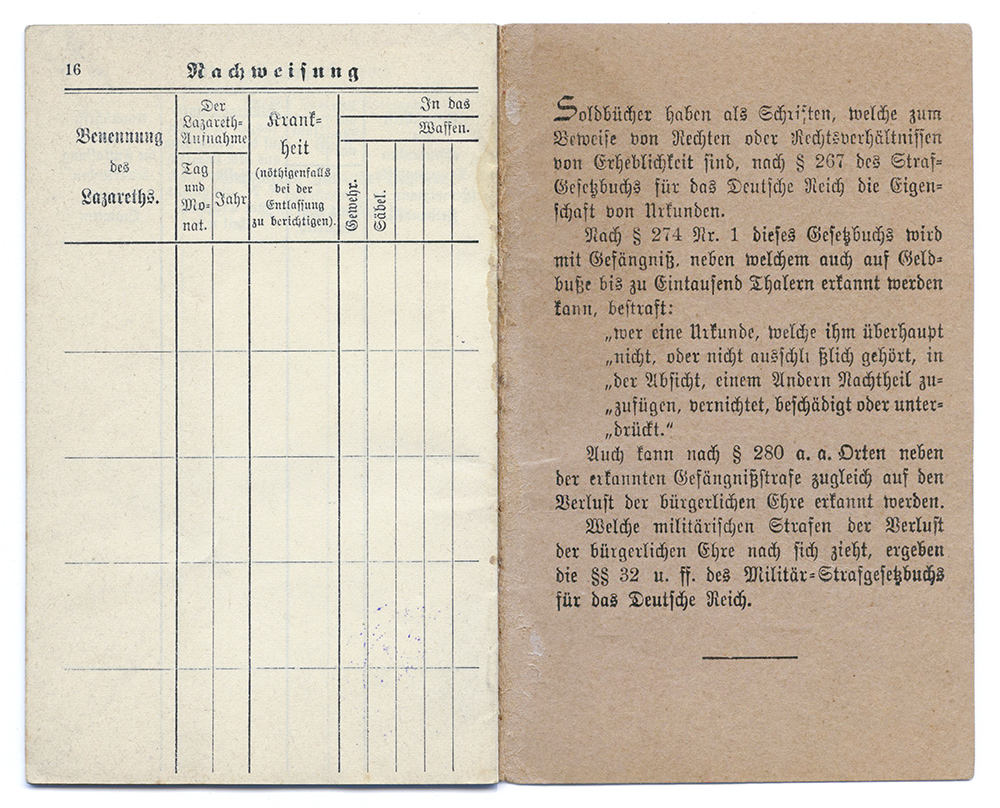 16
Nachweisung
Benennung
des
Lazareths.
Der
Lazareth-
Aufnahme
Tag
und
Mo-
nat.
Jahr
Krank-
heit
(nöthigenfalls
bei der
Entlassung
zu berichtigen).
In das
Waffen.
Gewehr.
Säbel.
Soldbücher haben als Schriften, welche zum
Beweise von Rechten oder Rechtsverhältnissen
von Erheblichkeit sind, nach § 267 des Straf-
Gesetzbuchs für das Deutsche Reich die Eigen-
schaft von Urkunden.
Nach § 274 Nr. 1 dieses Gesetzbuchs wird
mit Gefängniß, neben welchem auch auf Geld-
buße bis zu Eintausend Thalern erkannt werden
kann, bestraft:
„wer eine Urkunde, welche ihm überhaupt
„nicht, oder nicht ausschli ßlich gehört, in
„der Absicht, einem Andern Nachtheil zu-
„zufügen, vernichtet, beschädigt oder unter-
„drückt.“
Auch kann nach § 280 a. a. Orten neben
der erkannten Gefängnißstrafe zugleich auf den
Verlust der bürgerlichen Ehre erkannt werden.
Welche militärischen Strafen der Verlust
der bürgerlichen Ehre nach sich zieht, ergeben
die §§ 32 u. ff. des Militär-Strafgesetzbuchs
für das Deutsche Reich.